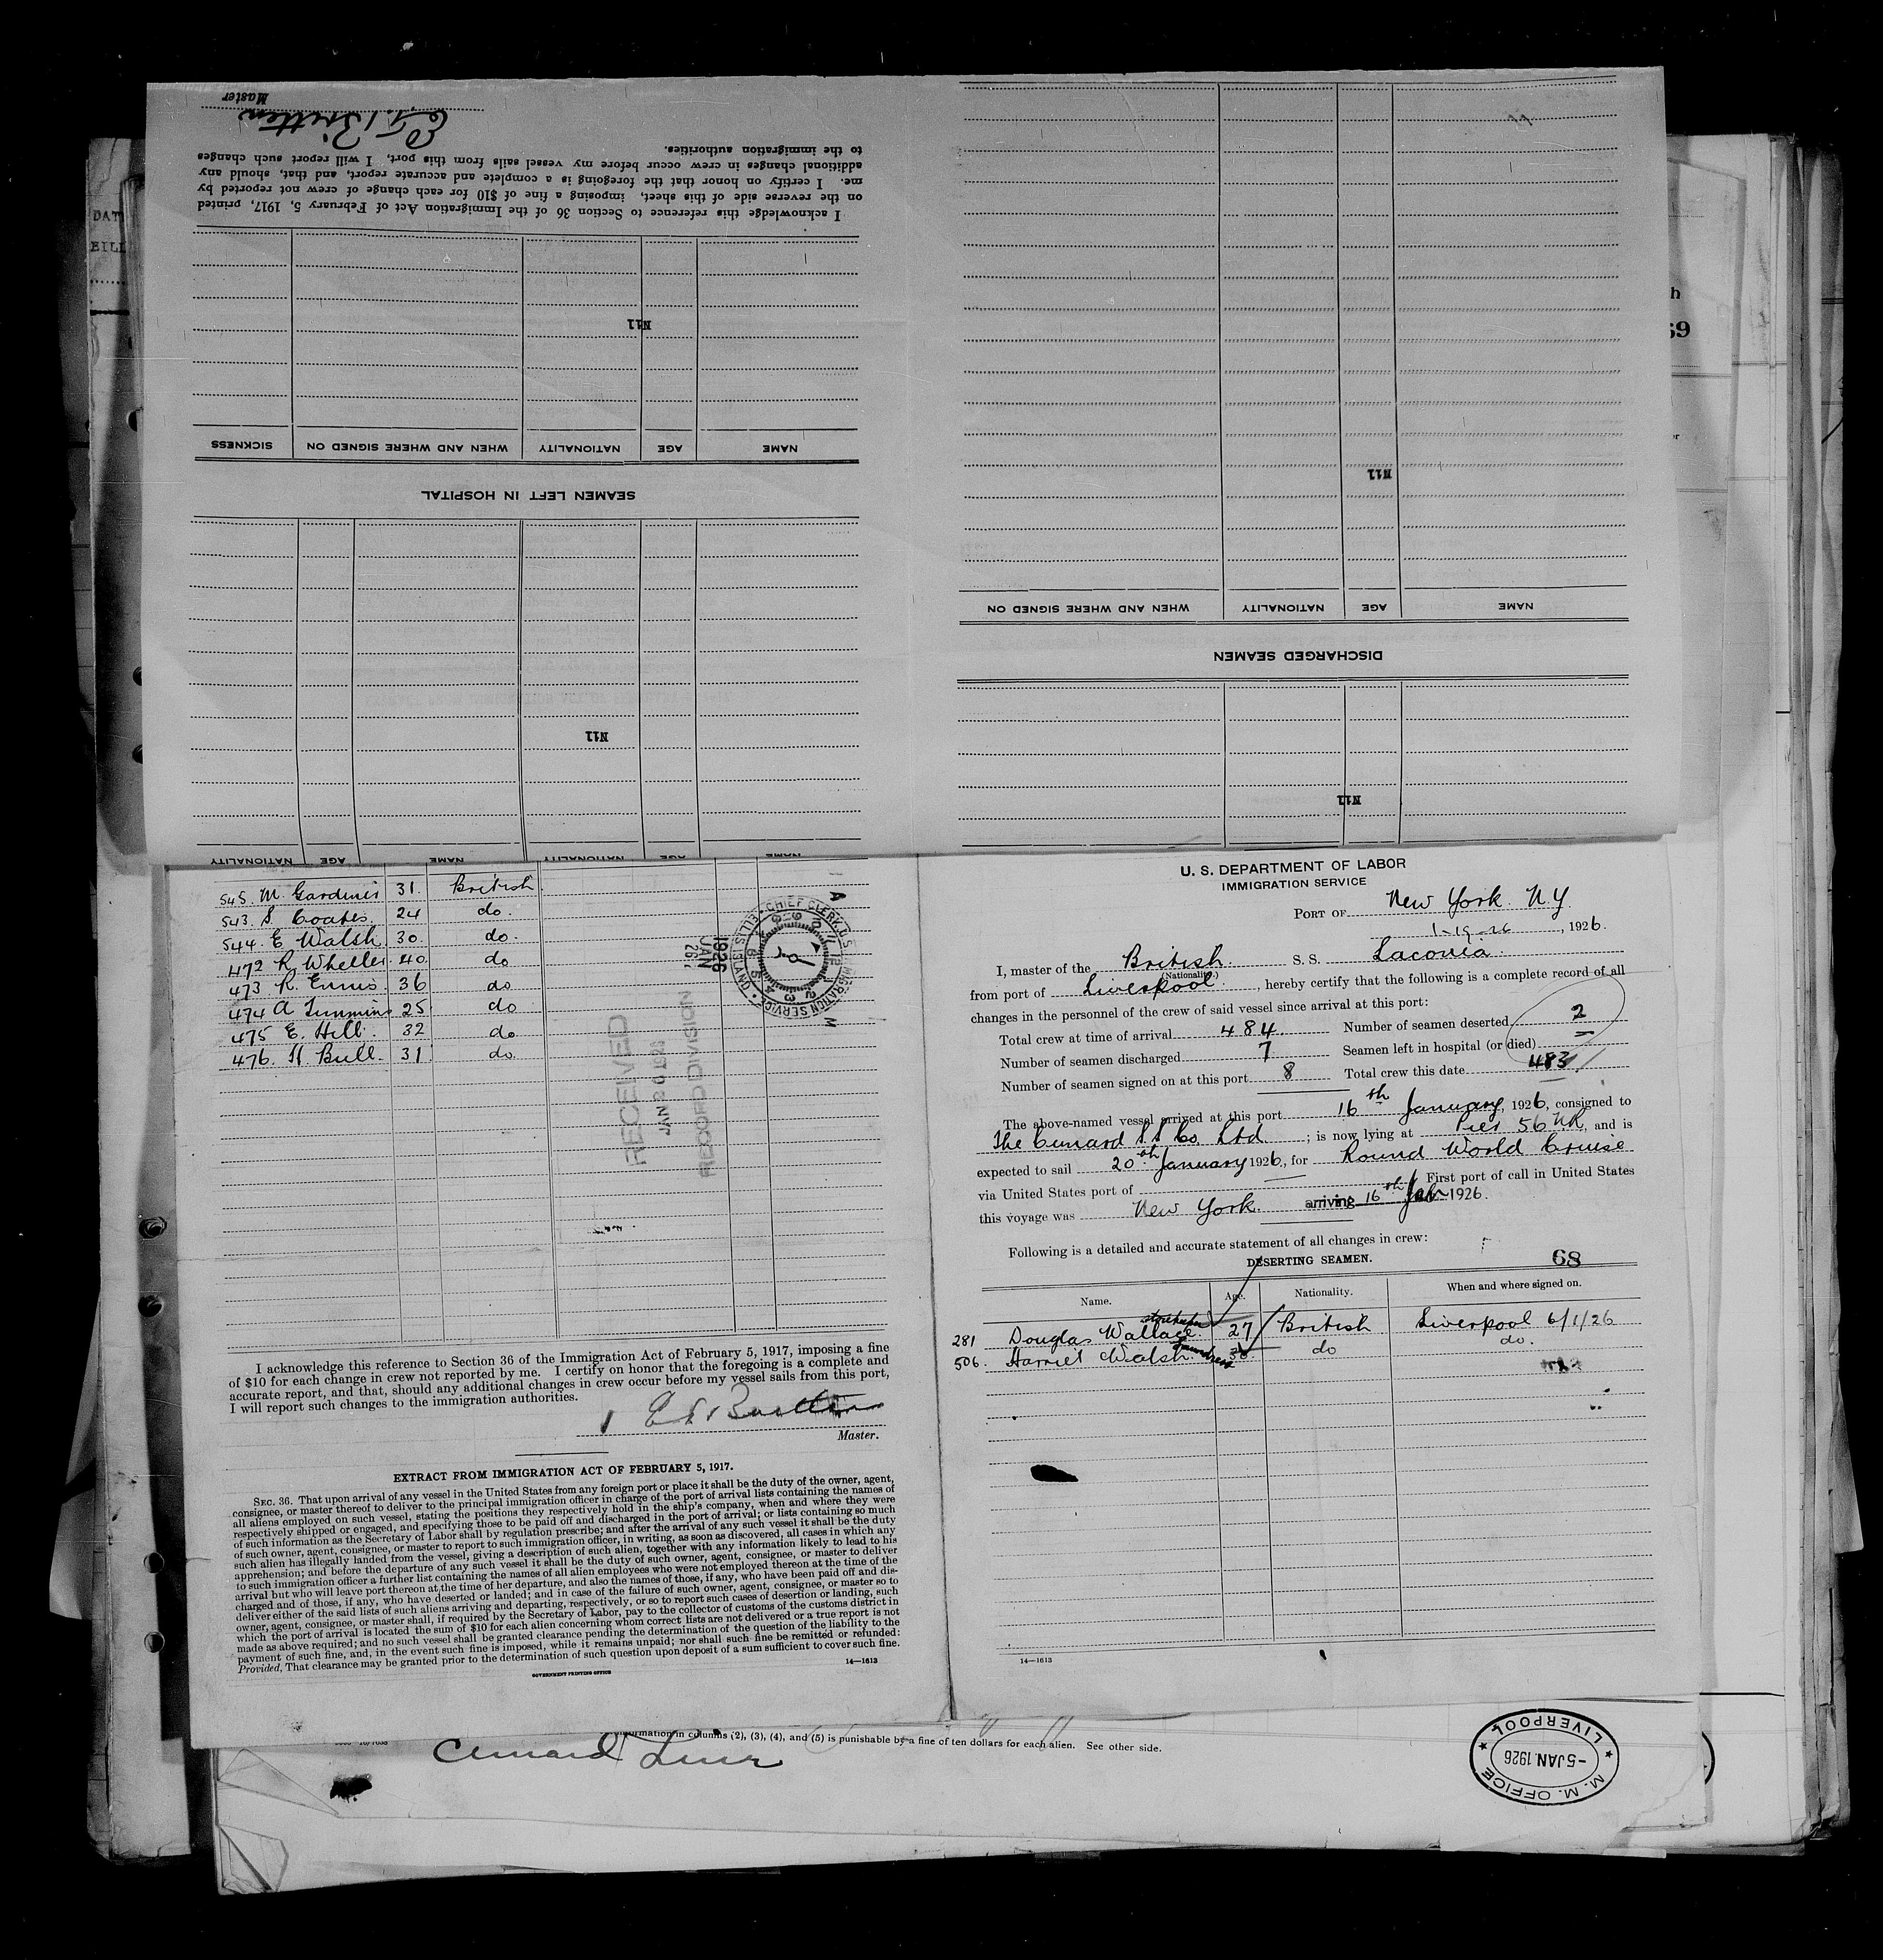 Master
E. G. Britten
I acknowledge this reference to Section 36 of the Immigration Act of February 5, 1917, printed
on the reverse side of this sheet, imposing a fine of $10 for each change of crew not reported by
me. I certify on honor that the foregoing is a complete and accurate report, and that, should any
additional changes in crew occur before my vessel sails from this port, I will report such changes
to the immigration authorities.
Nil
NAME AGE NATIONALITY WHEN AND WHERE SIGNED ON SICKNESS
SEAMEN LEFT IN HOSPITAL
Nil
NAME AGE NATIONALITY NAME AGE NATIONALITY
Nil
NAME AGE NATIONALITY WHEN AND WHERE SIGNED ON
DISCHARGED SEAMEN
Nil
DAT
EILL
h
69
545. M. Gardiner 31. British
543. S. Coates. 24 do.
544. E Walsh 30. do.
472 R Wheller 40 do
473 R. Ennis. 36 do
474 A Timmins 25 do
475 E. Hill. 32 do
476. H. Bull. 31 do
CHIEF CLERK, U.S. IMMIGRATION SERVICE • ELLIS ISLAND •
A M
1926
JAN
RECEIVED
JAN 20 1926
RECORD DIVISION
I acknowledge this reference to Section 36 of the Immigration Act of February 5, 1917, imposing a fine
of $10 for each change in crew not reported by me. I certify on honor that the foregoing is a complete and
accurate report, and that, should any additional changes in crew occur before my vessel sails from this port,
I will report such changes to the immigration authorities.
E G Britten
Master.
EXTRACT FROM IMMIGRATION ACT OF FEBRUARY 5, 1917.
SEC. 36. That upon arrival of any vessel in the United States from any foreign port or place it shall be the duty of the owner, agent,
consignee, or master thereof to deliver to the principal immigration officer in charge of the port of arrival lists containing the names of
all aliens employed on such vessel, stating the positions they respectively hold in the ship's company, when and where they were
respectively shipped or engaged, and specifying those to be paid off and discharged in the port of arrival; or lists containing so much
of such information as the Secretary of Labor shall by regulation prescribe; and after the arrival of any such vessel it shall be the duty
of such owner, agent, consignee, or master to report to such immigration officer, in writing, as soon as discovered, all cases in which any
such alien has illegally landed from the vessel, giving a description of such alien, together with any information likely to lead to his
apprehension; and before the departure of any such vessel it shall be the duty of such owner, agent, consignee, or master to deliver
to such immigration officer a further list containing the names of all alien employees who were not employed thereon at the time of the
arrival but who will leave port thereon at the time of her departure, and also the names of those, if any, who have been paid off and dis-
charged and of those, if any, who have deserted or landed; and in case of the failure of such owner, agent, consignee, or master so to
deliver either of the said lists of such aliens arriving and departing, respectively, or so to report such cases of desertion or landing, such
owner, agent, consignee, or master shall, if required by the Secretary of Labor, pay to the collector of customs of the customs district in
which the port of arrival is located the sum of $10 for each alien concerning whom correct lists are not delivered or a true report is not
made as above required; and no such vessel shall be granted clearance pending the determination of the question of the liability to the
payment of such fine, and, in the event such fine is imposed, while it remains unpaid; nor shall such fine be remitted or refunded:
Provided, That clearance may be granted prior to the determination of such question upon deposit of a sum sufficient to cover such fine.
GOVERNMENT PRINTING OFFICE
14—1613
U. S. DEPARTMENT OF LABOR
IMMIGRATION SERVICE
PORT OF New York. N.Y.
1-19-26, 1926.
I, master of the British S. S. Laconia.
(Nationality.)
from port of Liverpool., hereby certify that the following is a complete record of all
changes in the personnel of the crew of said vessel since arrival at this port:
Total crew at time of arrival 484. Number of seamen deserted 2
Number of seamen discharged 7 Seamen left in hospital (or died) —
Number of seamen signed on at this port 8 Total crew this date 483
The above-named vessel arrived at this port 16th January, 1926, consigned to
The Cunard S.S. Co. Ltd; is now lying at Pier 56 N.R, and is
expected to sail 20th January 1926, for Round World Cruise
via United States port of First port of call in United States
this voyage was New York. arriving 16th Jan 1926.
Following is a detailed and accurate statement of all changes in crew:
68
DESERTING SEAMEN.
Name. Age. Nationality. When and where signed on.
281 Douglas Wallace. 27 British Liverpool 6/1/26
506. Harriet Walsh. Laundress 38 do do.
14—1613
information in columns (2), (3), (4), and (5) is punishable by a fine of ten dollars for each alien. See other side.
Cunard Line
M. M. OFFICE
-5 JAN 1926
★ LIVERPOOL ★